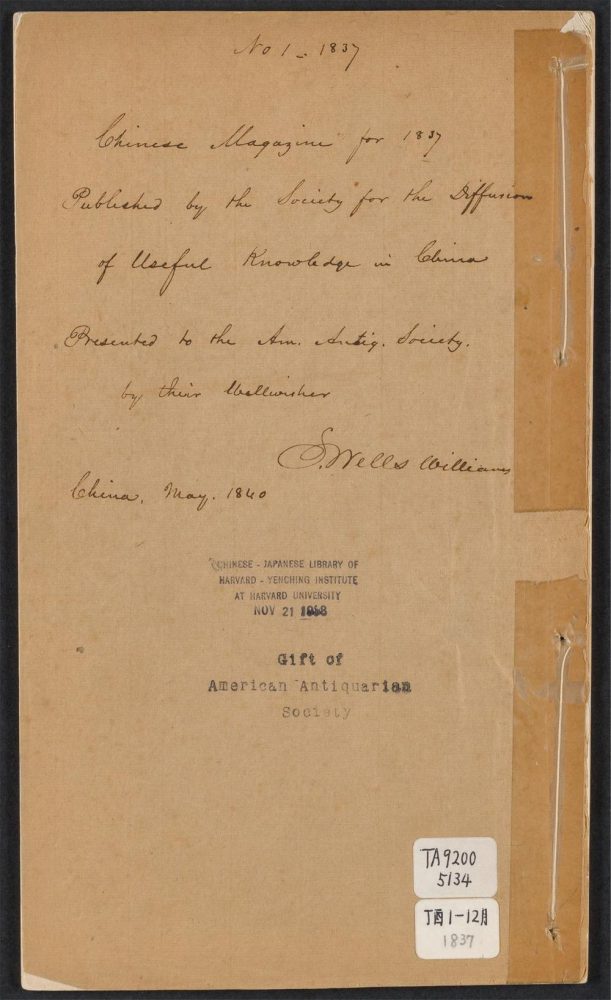 No 1 - 1837
Chinese Magazine for 1837
Published by the Society for the Diffusion
of Useful Knowledge in China
Presented to the Am. Antiq. Society.
by their Wellwisher
S. Wells Williams
China, May. 1840
CHINESE - JAPANESE LIBRARY OF
HARVARD - YENCHING INSTITUTE
AT HARVARD UNIVERSITY
NOV 21
Gift of
American Antiquarian
Society
TA9200
5134
丁酉 1-12月
1837